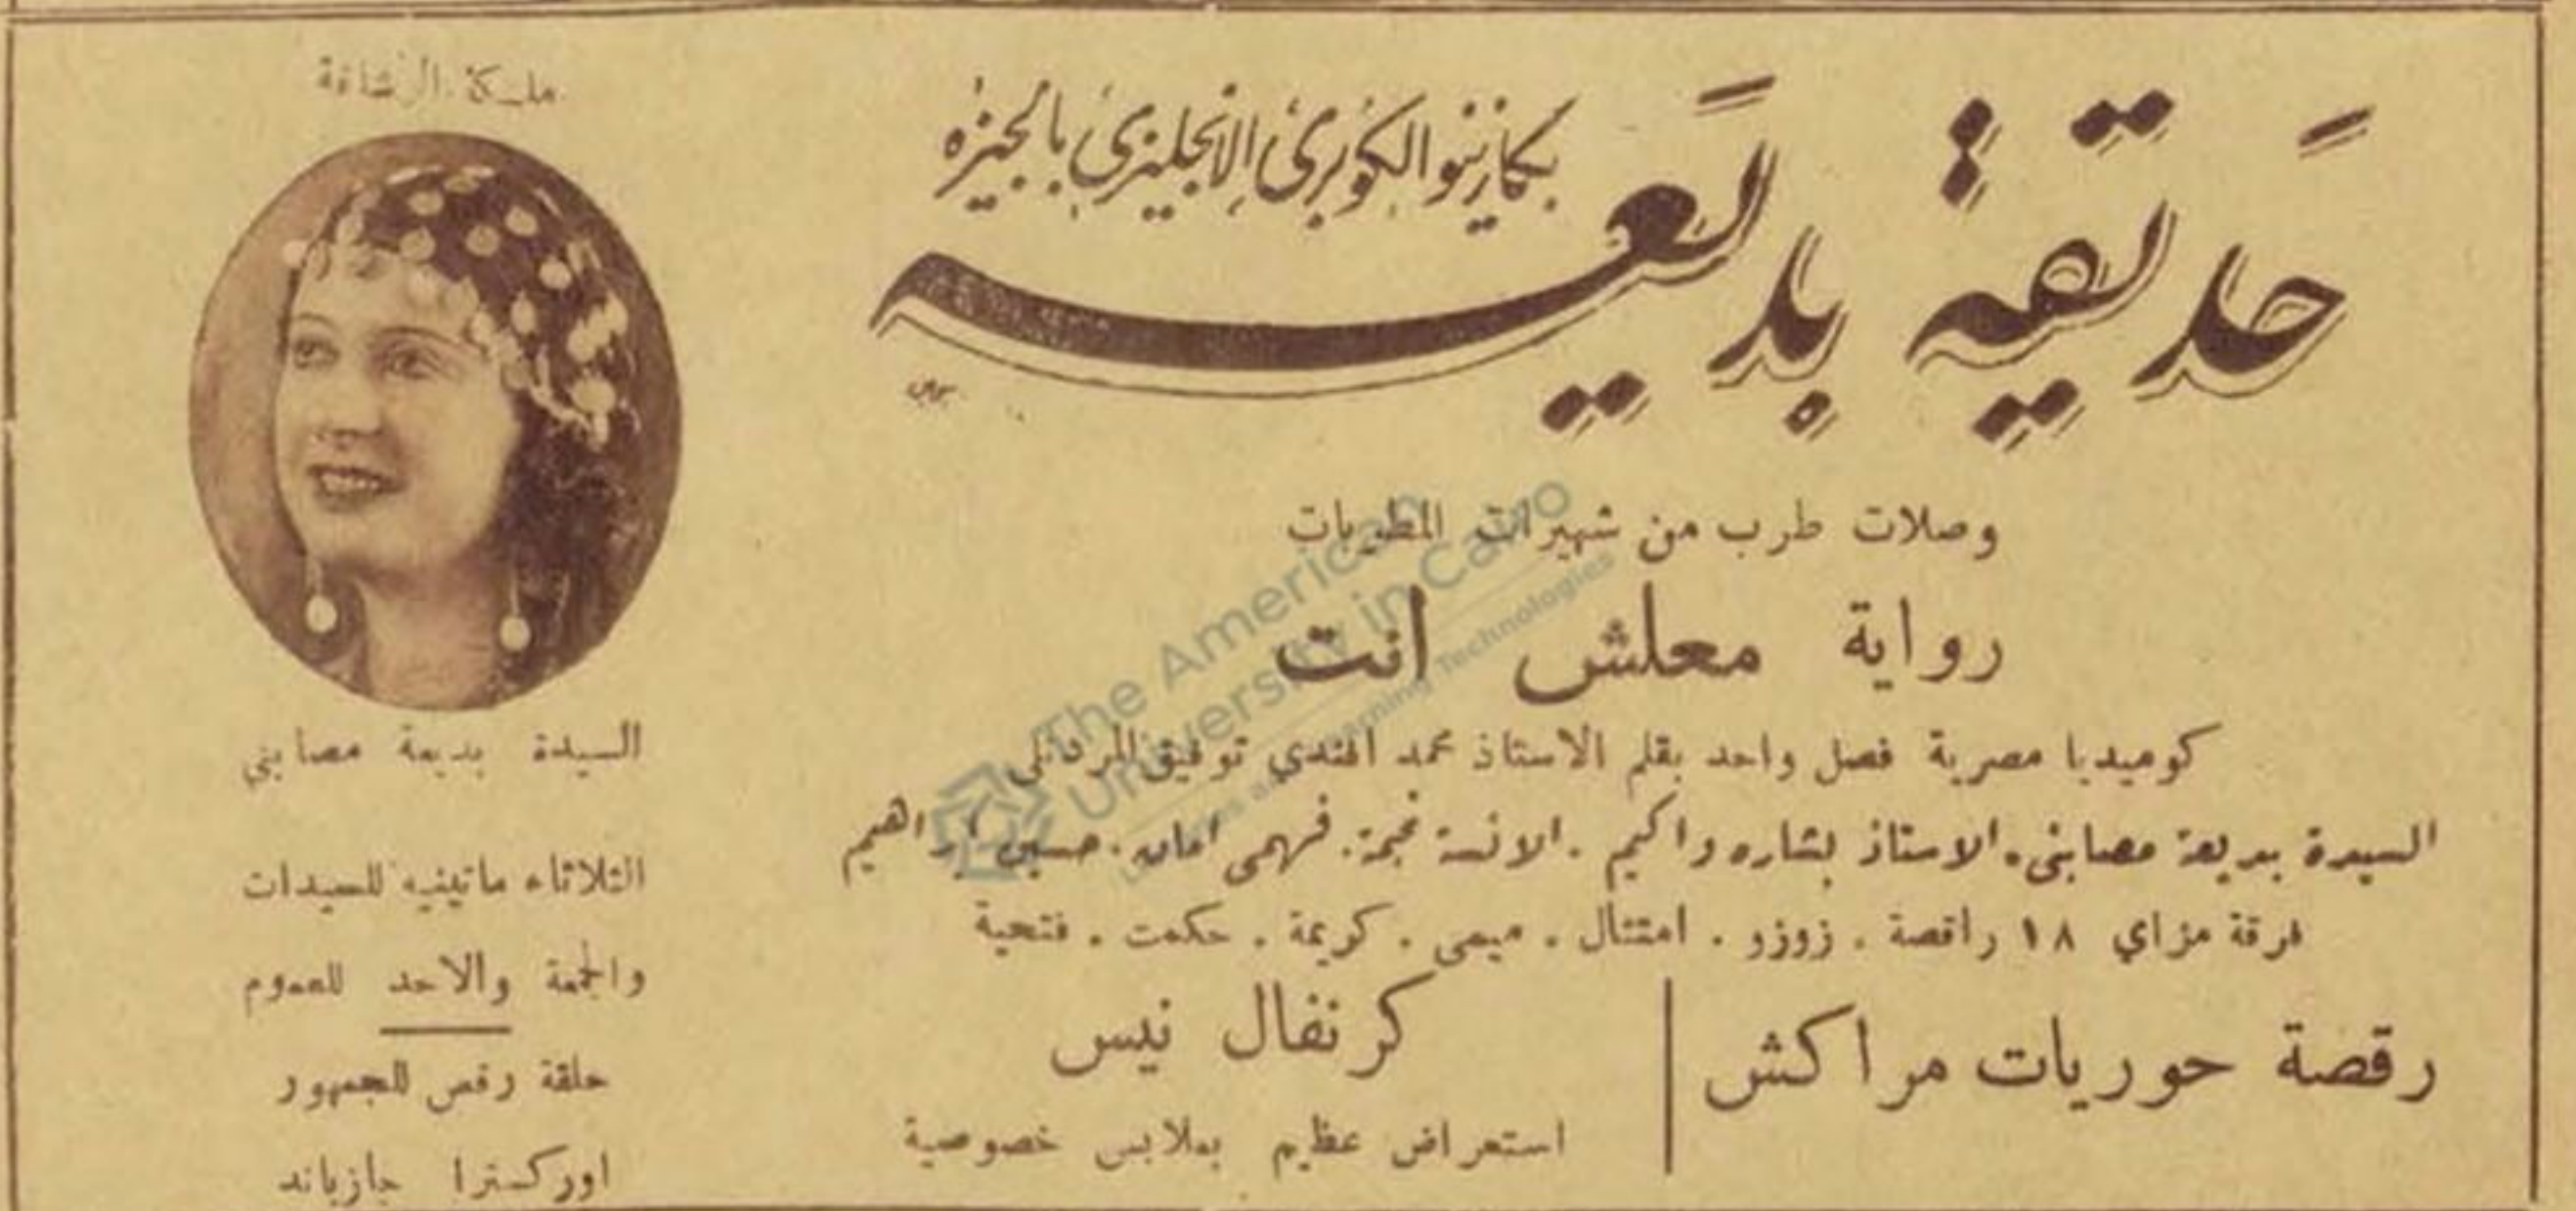 حديقة بديعه
بكازينو الكوبرى الانجليزى بالجيزه
وصلات طرب من شهيرات المطربات
رواية معلش انت
كوميديا مصرية فصل واحد بقلم الاستاذ محمد افندي توفيق
السيدة بديعة مصابنى . الاستاذ بشاره واكيم . الانسة نجمة . فهمى امان . حسين ابراهيم
فرقة مزاي ١٨ راقصة . زوزو . امتثال . ميمى . كريمة . حكمت . فتحية
رقصة حوريات مراكش
كرنفال نيس
استعراض عظيم بملابس خصوصية
ملكة الرشاقة
السيدة بديعة مصابني
الثلاثاء ماتينيه للسيدات
والجمعة والاحد للعموم
حلقة رقص للجمهور
اوركسترا جازباند
The American
University in Cairo
Libraries and Learning Technologies